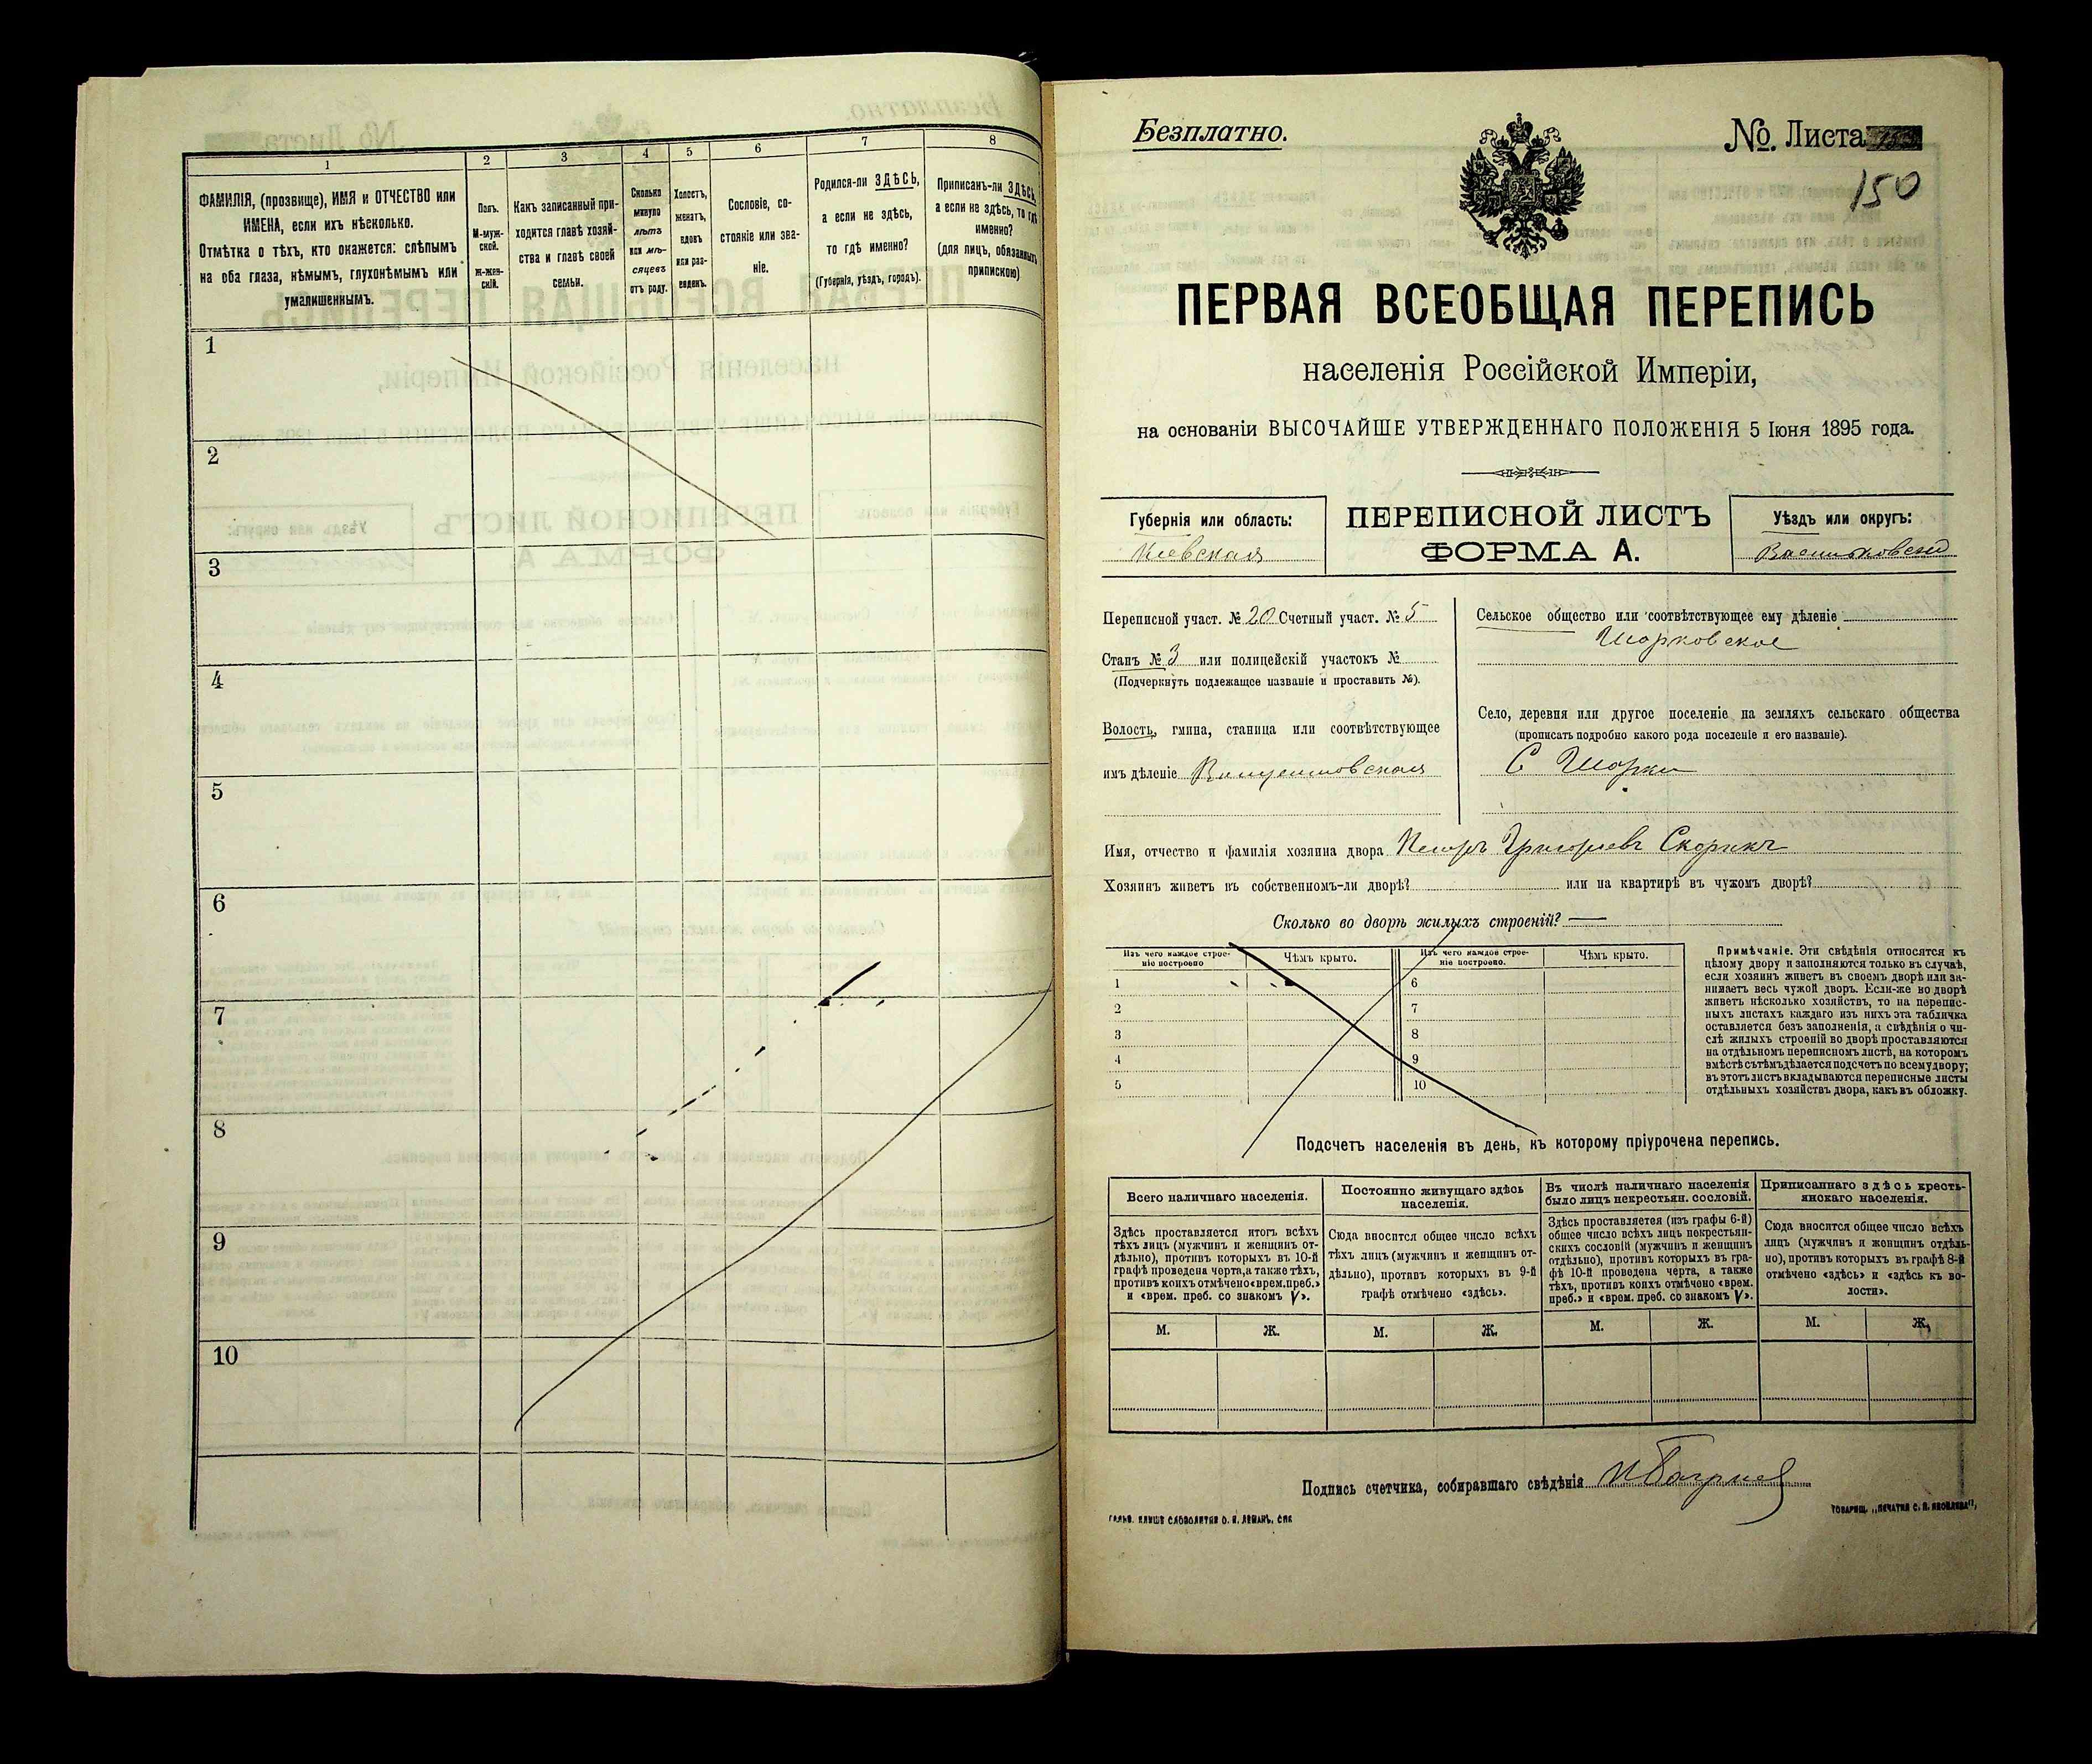 1
2
3
4
5
6
7
8
ФАМИЛІЯ, (прозвище), ИМЯ и ОТЧЕСТВО или
ИМЕНА, если ихъ нѣсколько.
Отмѣтка о тѣхъ, кто окажется: слѣпымъ
на оба глаза, нѣмымъ, глухонѣмымъ или
умалишеннымъ.
Полъ.
М-муж-
ской.
Ж-жен-
скій.
Какъ записанный при-
ходится главѣ хозяй-
ства и главѣ своей
семьи.
Сколько
минуло
лѣтъ
или мѣ-
сяцевъ
отъ роду.
Холостъ,
женатъ,
вдовъ
или раз-
веденъ.
Сословіе, со-
стояніе или зва-
ніе.
Родился-ли ЗДѢСЬ,
а если не здѣсь,
то гдѣ именно?
(Губернія, уѣздъ, городъ).
Приписанъ-ли ЗДѢСЬ,
а если не здѣсь, то гдѣ
именно?
(для лицъ, обязанныхъ
припискою)
1
2
3
4
5
6
7
8
9
10
Безплатно.
№. Листа
150
ПЕРВАЯ ВСЕОБЩАЯ ПЕРЕПИСЬ
населенія Россійской Имперіи,
на основаніи ВЫСОЧАЙШЕ УТВЕРЖДЕННАГО ПОЛОЖЕНІЯ 5 Іюня 1895 года.
Губернія или область:
Кіевская
ПЕРЕПИСНОЙ ЛИСТЪ
ФОРМА А.
Уѣздъ или округъ:
Васильковскій
Переписной участ. № 20 Счетный участ. № 5
Станъ № 3 или полицейскій участокъ №
(Подчеркнуть подлежащее названіе и проставить №).
Волость, гмина, станица или соотвѣтствующее
имъ дѣленіе Винцентовская
Сельское общество или соотвѣтствующее ему дѣленіе
Шарковское
Село, деревня или другое поселеніе на земляхъ сельскаго общества
(прописать подробно какого рода поселеніе и его названіе).
С Шарки
Имя, отчество и фамилія хозяина двора Петръ Григорьевъ Скорикъ
Хозяинъ живетъ въ собственномъ-ли дворѣ? или на квартирѣ въ чужомъ дворѣ?
Сколько во дворѣ жилыхъ строеній? —
Изъ чего каждое строе-
ніе построено
Чѣмъ крыто.
Изъ чего каждое строе-
ніе построено.
Чѣмъ крыто.
1 6
2 7
3 8
4 9
5 10
Примѣчаніе. Эти свѣдѣнія относятся къ
цѣлому двору и заполняются только въ случаѣ,
если хозяинъ живетъ въ своемъ дворѣ или за-
нимаетъ весь чужой дворъ. Если-же во дворѣ
живетъ нѣсколько хозяйствъ, то на перепис-
ныхъ листахъ каждаго изъ нихъ эта табличка
оставляется безъ заполненія, а свѣдѣнія о чи-
слѣ жилыхъ строеній во дворѣ проставляются
на отдѣльномъ переписномъ листѣ, на которомъ
вмѣстѣ съ тѣмъ дѣлается подсчетъ по всему двору;
въ этотъ листъ вкладываются переписные листы
отдѣльныхъ хозяйствъ двора, какъ въ обложку.
Подсчетъ населенія въ день, къ которому пріурочена перепись.
Всего наличнаго населенія.
Здѣсь проставляется итогъ всѣхъ
тѣхъ лицъ (мужчинъ и женщинъ от-
дѣльно), противъ которыхъ въ 10-й
графѣ проведена черта, а также тѣхъ,
противъ коихъ отмѣчено «врем. преб.»
и «врем. преб. со знакомъ V».
Постоянно живущаго здѣсь
населенія.
Сюда вносится общее число всѣхъ
тѣхъ лицъ (мужчинъ и женщинъ от-
дѣльно), противъ которыхъ въ 9-й
графѣ отмѣчено «здѣсь».
Въ числѣ наличнаго населенія
было лицъ некрестьян. сословій.
Здѣсь проставляется (изъ графы 6-й)
общее число всѣхъ лицъ некрестьян-
скихъ сословій (мужчинъ и женщинъ
отдѣльно), противъ которыхъ въ гра-
фѣ 10-й проведена черта, а также
тѣхъ, противъ коихъ отмѣчено «врем.
преб.» и «врем. преб. со знакомъ V».
Приписаннаго здѣсь кресть-
янскаго населенія.
Сюда вносится общее число всѣхъ
лицъ (мужчинъ и женщинъ отдѣль-
но), противъ которыхъ въ графѣ 8-й
отмѣчено «здѣсь» и «здѣсь къ во-
лости».
М. Ж. М. Ж. М. Ж. М. Ж.
Подпись счетчика, собиравшаго свѣдѣнія
ГАЛЬВ. КЛИШЕ СЛОВОЛИТНИ О. И. ЛЕМАНЪ, СПБ
ТОВАРИЩ. „ПЕЧАТНЯ С. П. ЯКОВЛЕВА“,